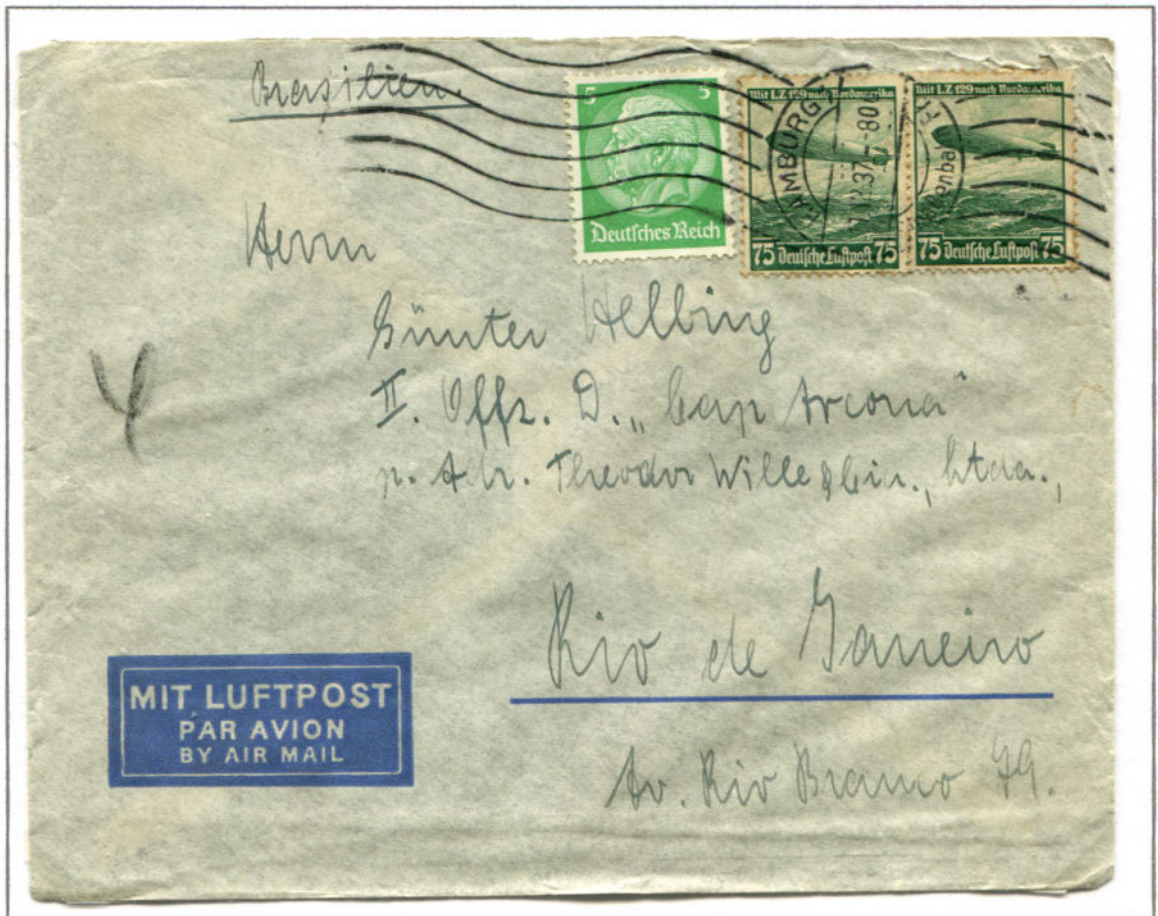 Brasilien.
5 5
Deutsches Reich
Mit LZ 129 nach Nordamerika
75 Deutsche Luftpost 75
Mit LZ 129 nach Nordamerika
75 Deutsche Luftpost 75
HAMBURG
37.-80
Herrn
Günter Helbing
II. Offz. D. „Cap Arcona"
p. Adr. Theodor Wille & Cia., Ltda.,
Rio de Janeiro
Av. Rio Branco 79.
MIT LUFTPOST
PAR AVION
BY AIR MAIL